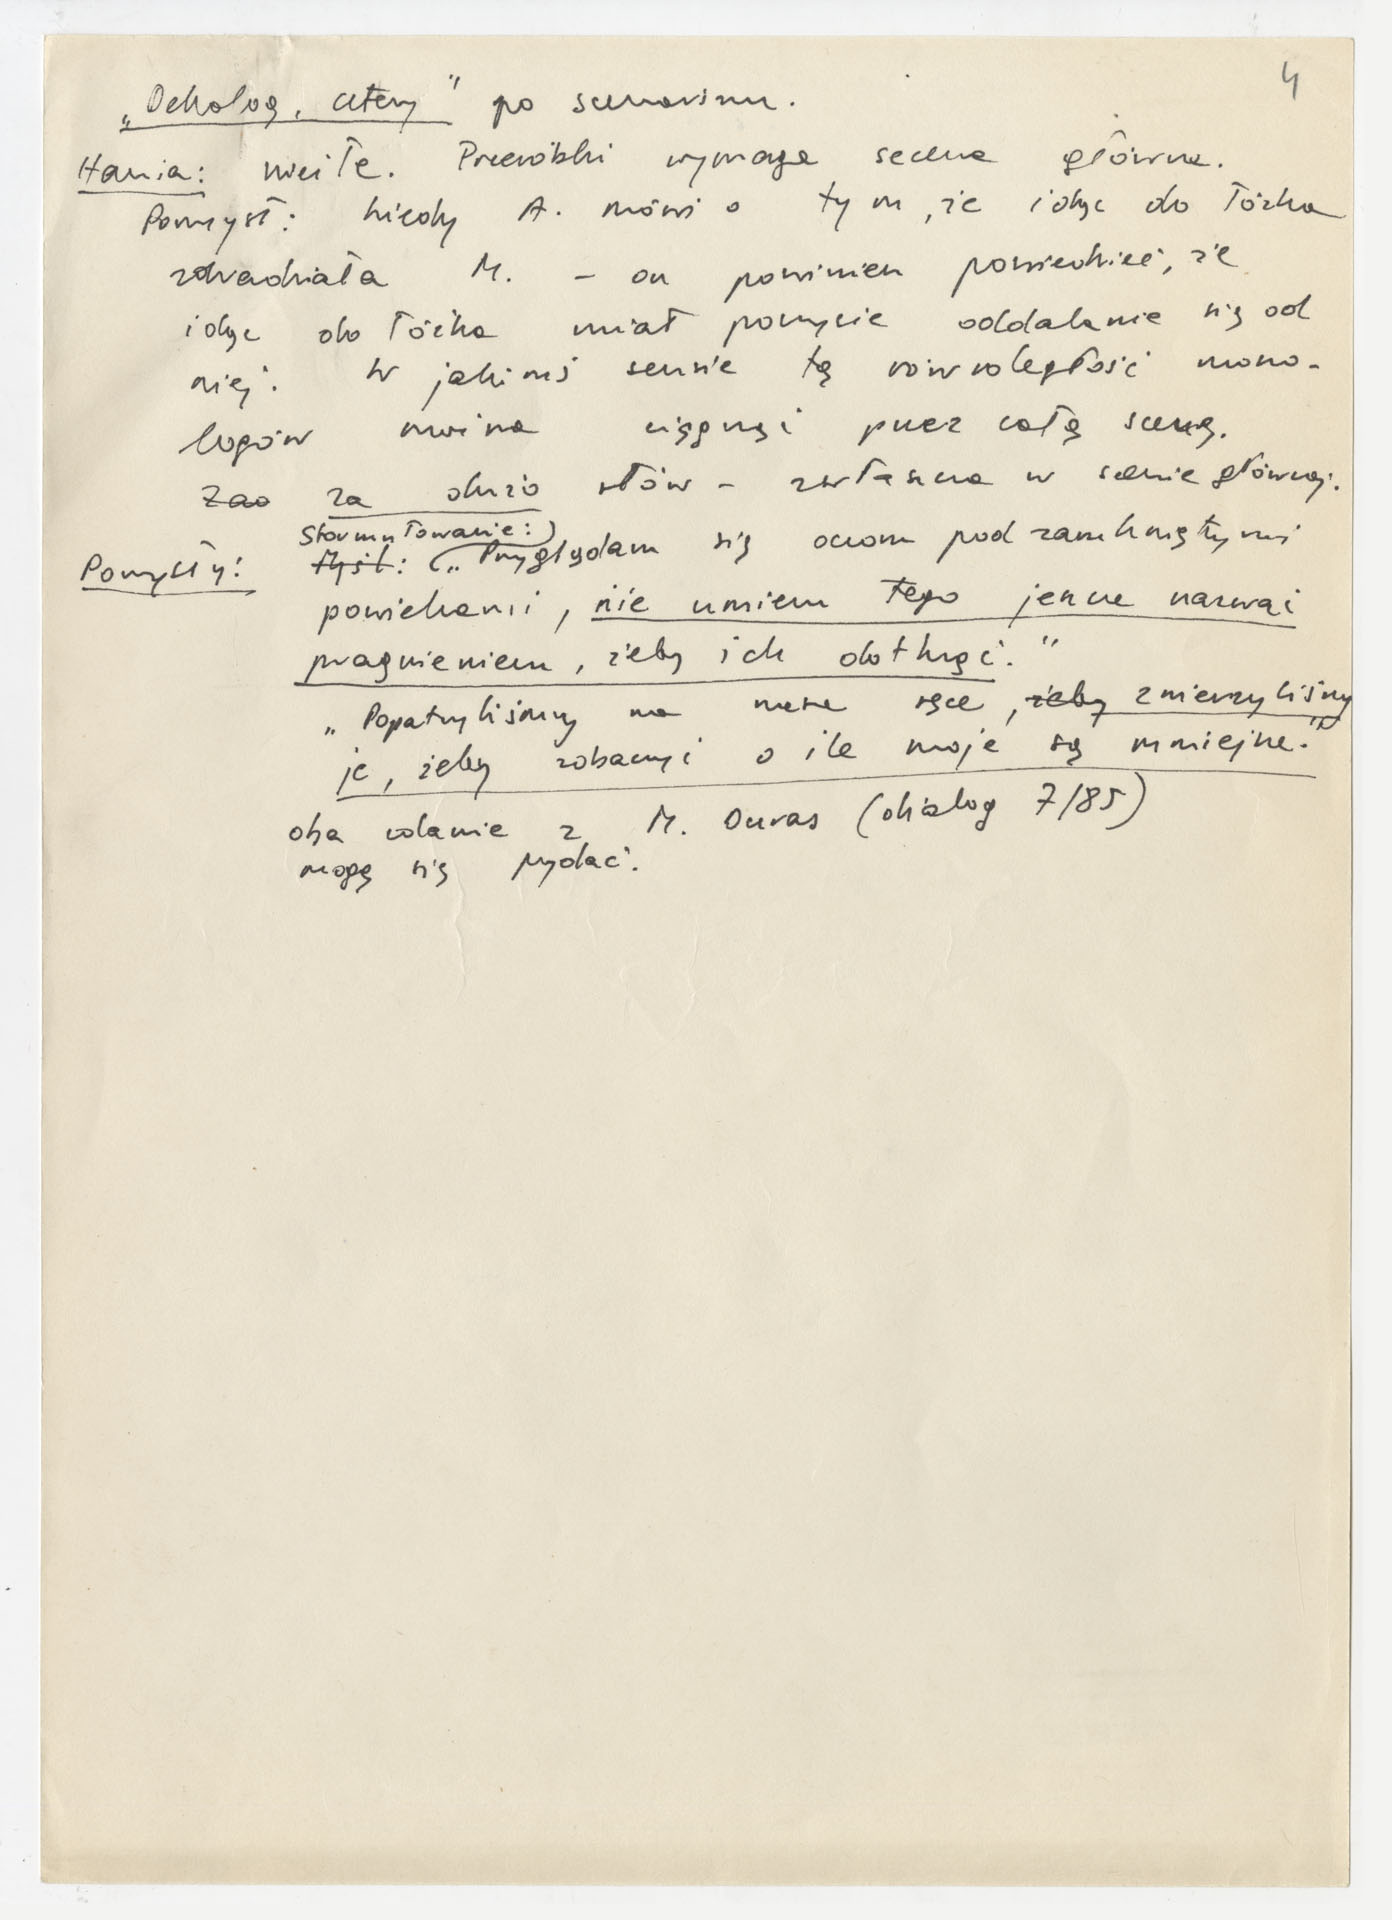 4
„Dekalog, cztery" po scenariuszu.
Hania: niezłe. Przeróbki wymaga scena główna.
Pomysł: kiedy A. mówi o tym, że idąc do łóżka
zdradzała M. – on powinien powiedzieć, że
idąc do łóżka miał poczucie oddalanie się od
niej. W jakimś sensie tę równoległość mono-
logów można ciągnąć przez całą scenę.
Zao za dużo słów – zwłaszcza w scenie głównej.
Sformułowanie:
Pomysły: Myśl: („Przyglądam się oczom pod zamkniętymi
powiekami, nie umiem tego jeszcze nazwać
pragnieniem, żeby ich dotknąć."
„Popatrzyliśmy na nasze ręce, żeby zmierzyliśmy
je, żeby zobaczyć o ile moje są mniejsze."
oba zdanie z M. Duras (dialog 7/85)
mogą się przydać.